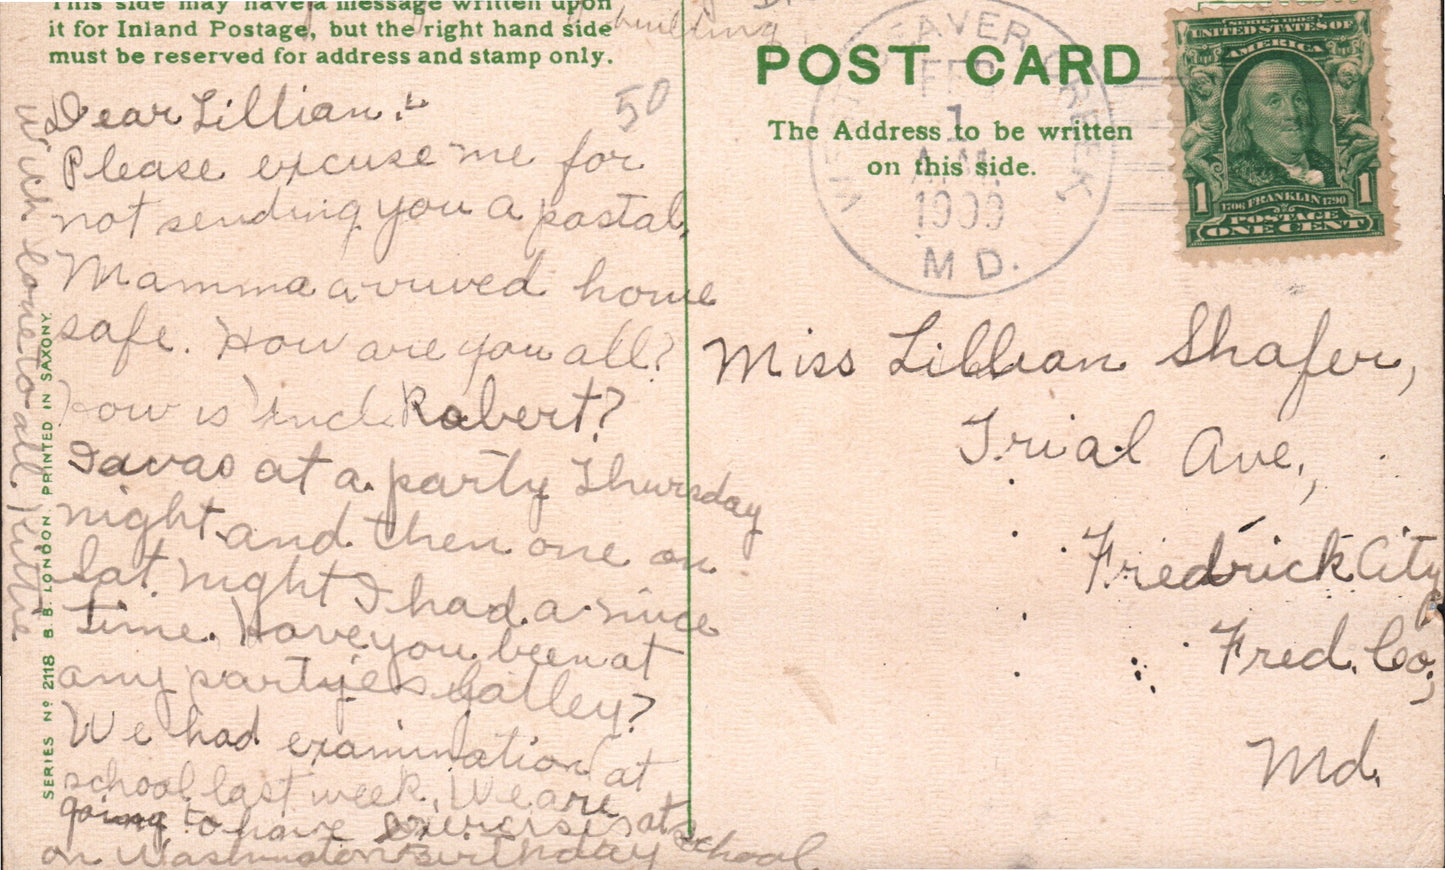 This side may have a message written upon
it for Inland Postage, but the right hand side
must be reserved for address and stamp only.
building
50
Dear Lillian:-
Please excuse me for
not sending you a postal.
Mamma arrived home
safe. How are you all?
how is Robert?
I was at a party Thursday
night and then one on
Sat. night I had a nice
time. Have you been at
any partyies latley?
We had examination at
school last week. We are
going to have exercises at school
on Washington Birthday
With love to all
SERIES Nº 2118 B.B. LONDON, PRINTED IN SAXONY.
POST CARD
The Address to be written
on this side.
BEAVER CREEK
FEB
1
A.M.
1909
MD.
SERIES 1902
UNITED STATES OF
AMERICA
1 1706 FRANKLIN 1790 1
POSTAGE
ONE CENT
Miss Lillian Shafer,
Trial Ave.,
Fredrick City
Fred. Co.,
Md.